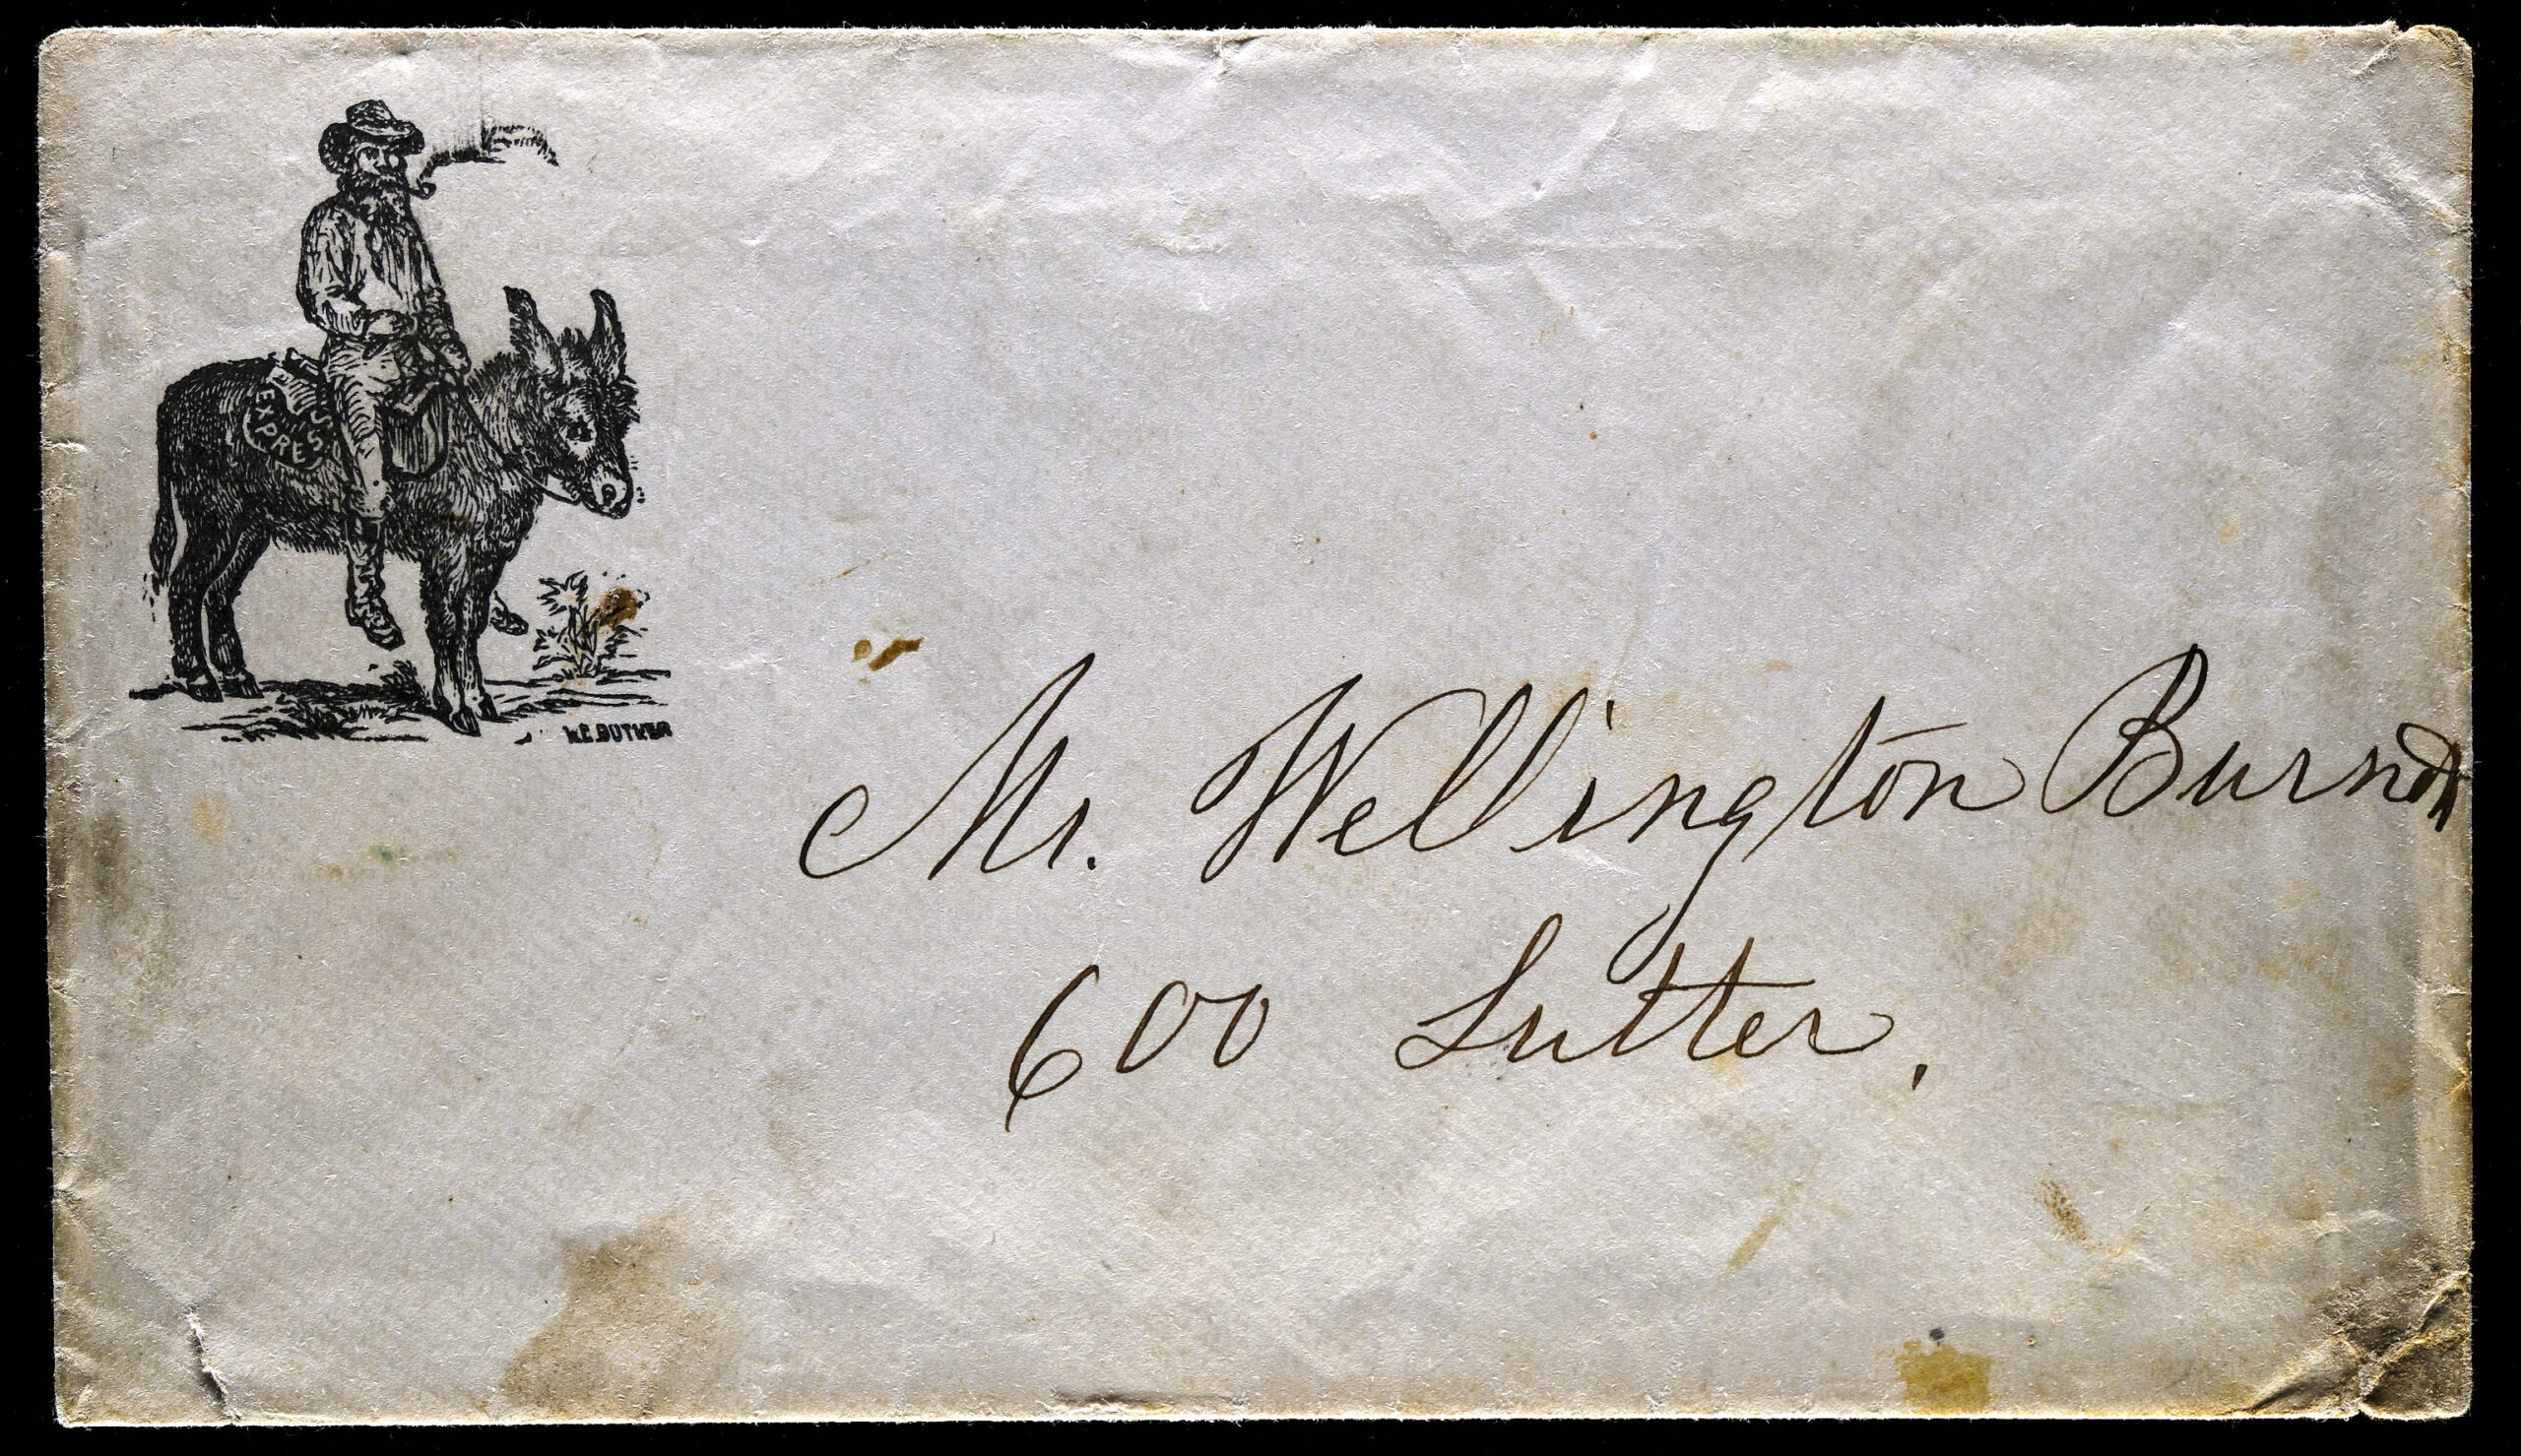 EXPRESS
W.C. BUTLER
Mr. Wellington
600 Sutter.